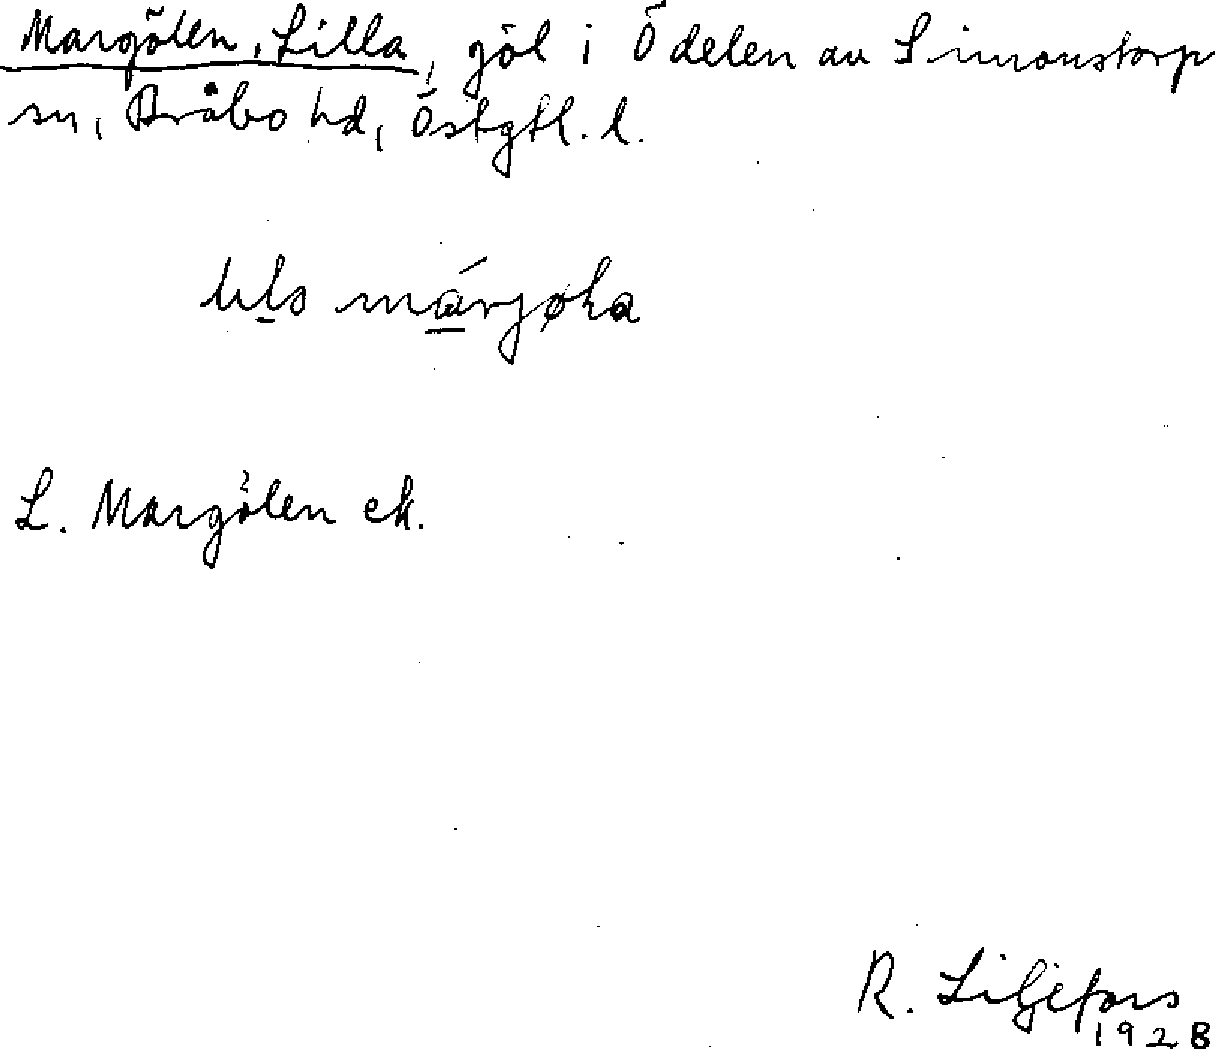 Margölen, Lilla, göl i Ö delen av Simonstorp
sn, Bråbo hd, Östgtl. l.
L. Margölen ek.
R. Liljefors
1928